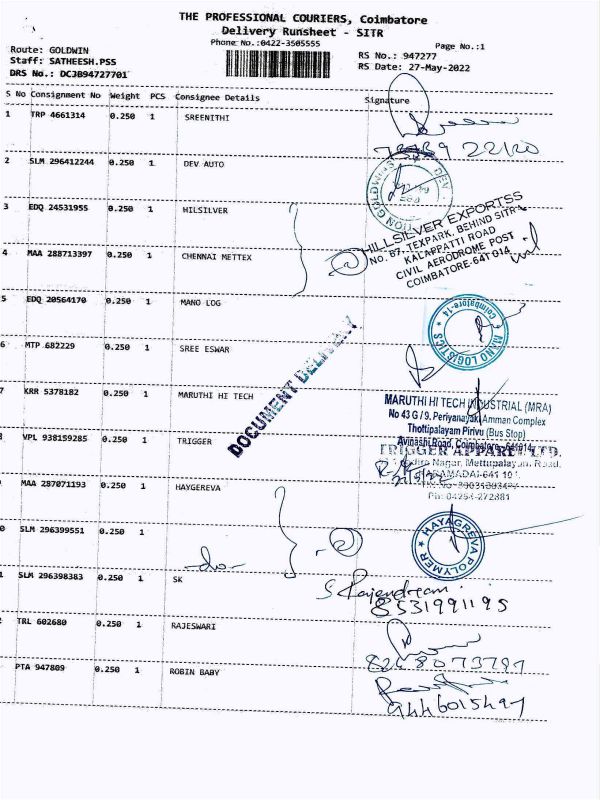 THE PROFESSIONAL COURIERS, Coimbatore
Delivery Runsheet - SITR
Phone No.:0422-3505555
Page No.:1
Route: GOLDWIN
Staff: SATHEESH.PSS
DRS No.: DCJB94727701
RS No.: 947277
RS Date: 27-May-2022
S No Consignment No Weight PCS Consignee Details Signature
1 TRP 4661314 0.250 1 SREENITHI
2 SLM 296412244 0.250 1 DEV AUTO
DEV
GOLDWINS
3 EDQ 24531955 0.250 1 HILSILVER
HILLSILVER EXPORTSS
No. 67, TEXPARK, BEHIND SITRA
KALAPPATTI ROAD
CIVIL AERODROME POST
COIMBATORE-641 014
4 MAA 288713397 0.250 1 CHENNAI METTEX
5 EDQ 20564170 0.250 1 MANO LOG
Coimbatore-14
MANO LOGISTICS
DOCUMENT DELIVERY
6 MTP 682229 0.250 1 SREE ESWAR
7 KRR 5378182 0.250 1 MARUTHI HI TECH
MARUTHI HI TECH INDUSTRIAL (MRA)
No 43 G / 9, Periyanayaki Amman Complex
Thottipalayam Pirivu (Bus Stop)
Avinashi Road, Coimbatore - 641014
8 VPL 938159285 0.250 1 TRIGGER
TRIGGER APPAREL LTD.
Nagar, Mettupalayam Road,
KARAMADAI-641 104
Ph: 04254-272881
9 MAA 287071193 0.250 1 HAYGEREVA
HAYAGREVA POLYMER
0 SLM 296399551 0.250 1
-do-
1 SLM 296398383 0.250 1 SK
S Rajendran
8531991195
2 TRL 602680 0.250 1 RAJESWARI
8248073791
PTA 947809 0.250 1 ROBIN BABY
9446015497